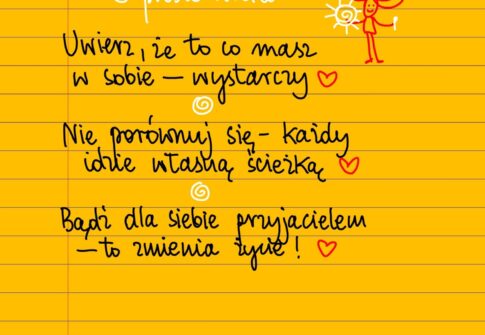 Uwierz, że to co masz
w sobie – wystarczy
Nie porównuj się – każdy
idzie własną ścieżką
Bądź dla siebie przyjacielem
– to zmienia życie!